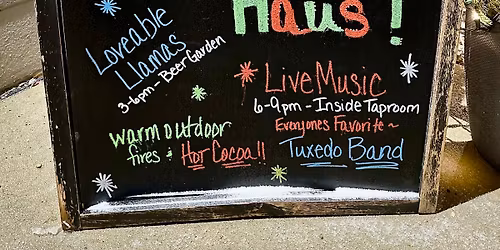 Haus!
Loveable
Llamas
3-6pm - Beer Garden
Live Music
6-9pm - Inside Taproom
Everyones Favorite ~
Tuxedo Band
warm outdoor
fires & Hot Cocoa!!